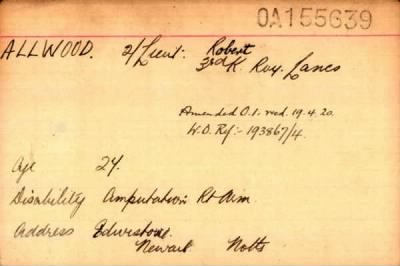 OA155639
ALLWOOD. 2/Lieut: Robert
3rd K. Roy. Lancs
Amended O.I. recd. 19.4.20.
W.O. Ref:- 193867/4.
Age 24.
Disability Amputation Rt Arm.
Address Edwinstowe.
Newark Notts